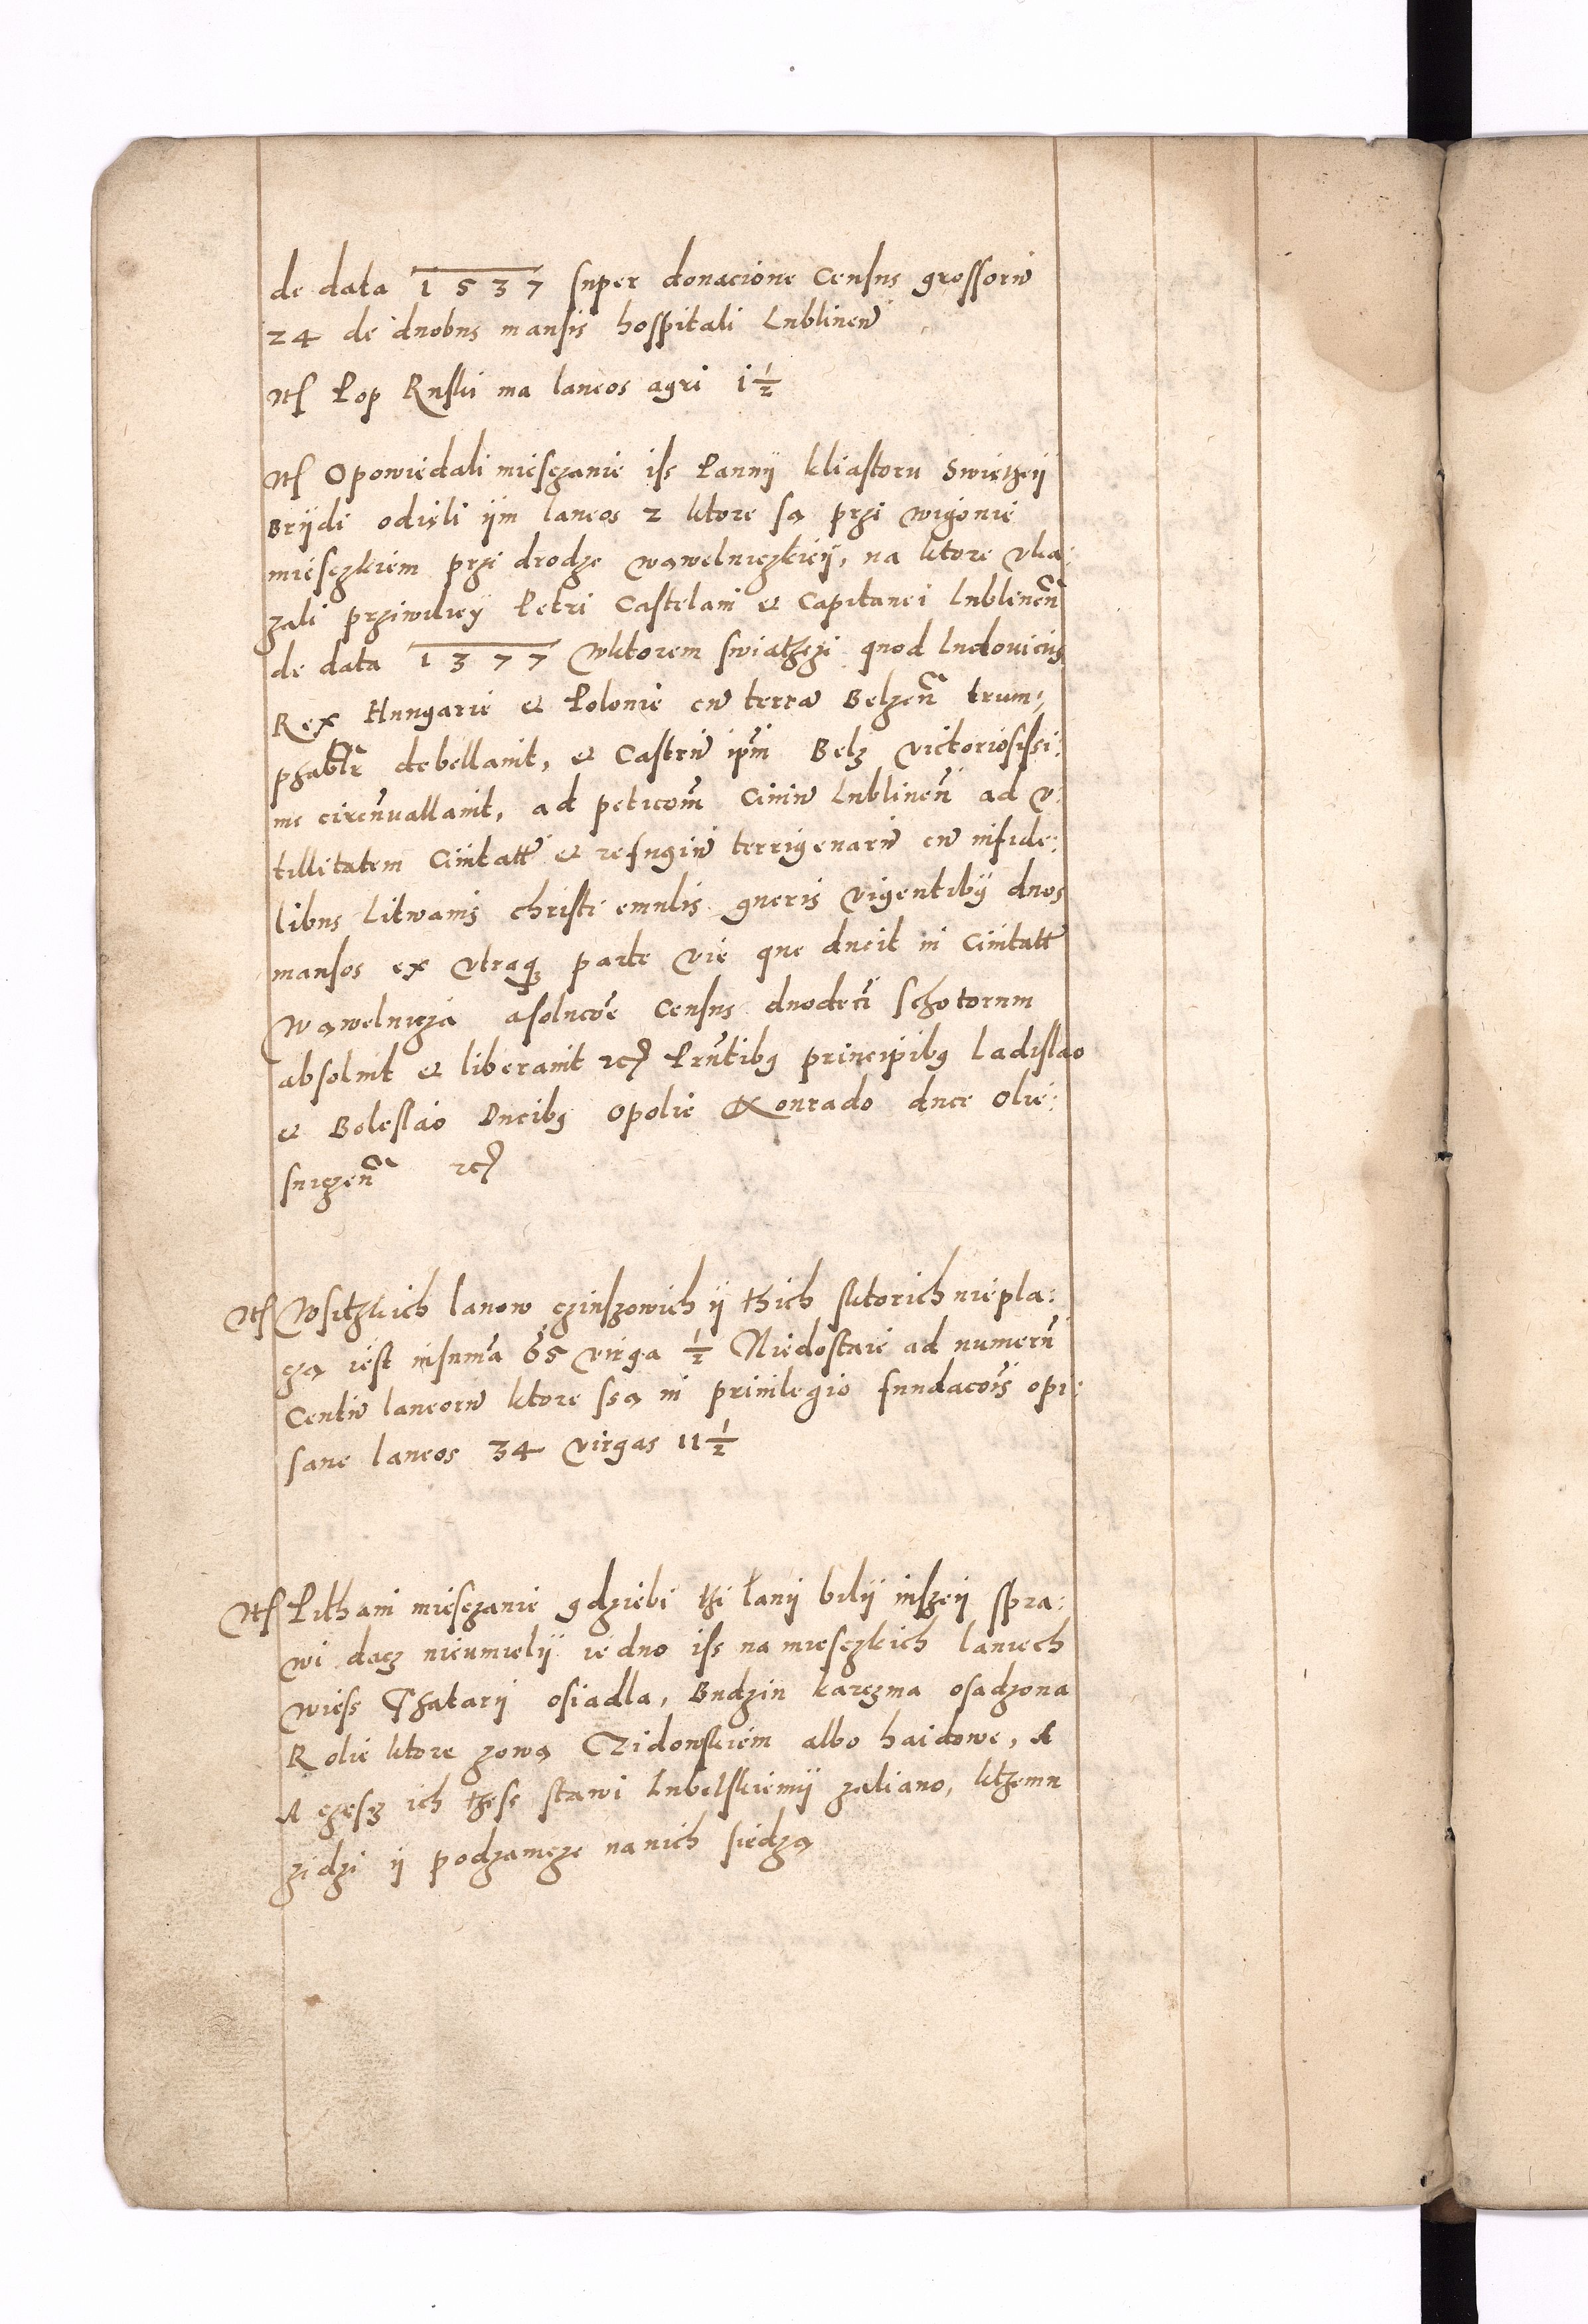 de data 1537 super donacione Census grossorū
24 de duobus mansis hospitali Lublineñ
Itē Pop Ruski ma laneos agri 1½
Itē Opowiedali miesczanie iss Pannÿ kliastoru Swiętheÿ
Brÿdi odięli ÿm laneos 2 ktore są przi wigonie
miesczkiem przi drodze wąwelniczkieÿ, na ktore vka:
zali prziwiley Petri Castelani et Capitanei Lublineñ
de data 1377 wktorem swiathczi quod Ludouicus
Rex Hungarie et Polonie cū terrā Belzeñ trium:
phabłr debellauit, et Castrū ipm̄ Belz victoriosissi:
me circūvallauit, ad peticoēm Ciuiū Lublineñ ad v:
tillitatem Ciuitatt̄ et refugiū terrigenarū cū infide:
libus Litwanis christi emulis gueris vigentibꝯ duos
mansos ex vtraqꝫ parte vie que ducit in Ciuitatt̄
Wąwelnicza asolucoē Census duodeci schotorum
absoluit et liberauit etc Prn̄tibꝯ principibꝯ Ladislao
et Boleslao Ducibꝯ Opolie Konrado duce Olie:
sniczeñ etc
Itē Wsitzkich lanow czinszowich ÿ thich sktorich niepla:
czą iest insum̄a 65 virga ½ Niedostaie ad numerū
Centū laneorū ktore ssą in priuilegio fundacoīs opi:
sane laneos 34 virgas 11½
Itē Pithani miesczanie gdziebi thi lanÿ bilÿ inszeÿ spra:
wi dacz nieumielÿ iedno iss na miesczkich laniech
wiess Thatarÿ osiadla, Budzin karczma osadzona
Rolie ktore zową Czidowskiem albo haidowe, A
A częscz ich thesz stawi Lubelskiemÿ zaliano, kthemu
zidzi ÿ podzamcze nanich siedzą